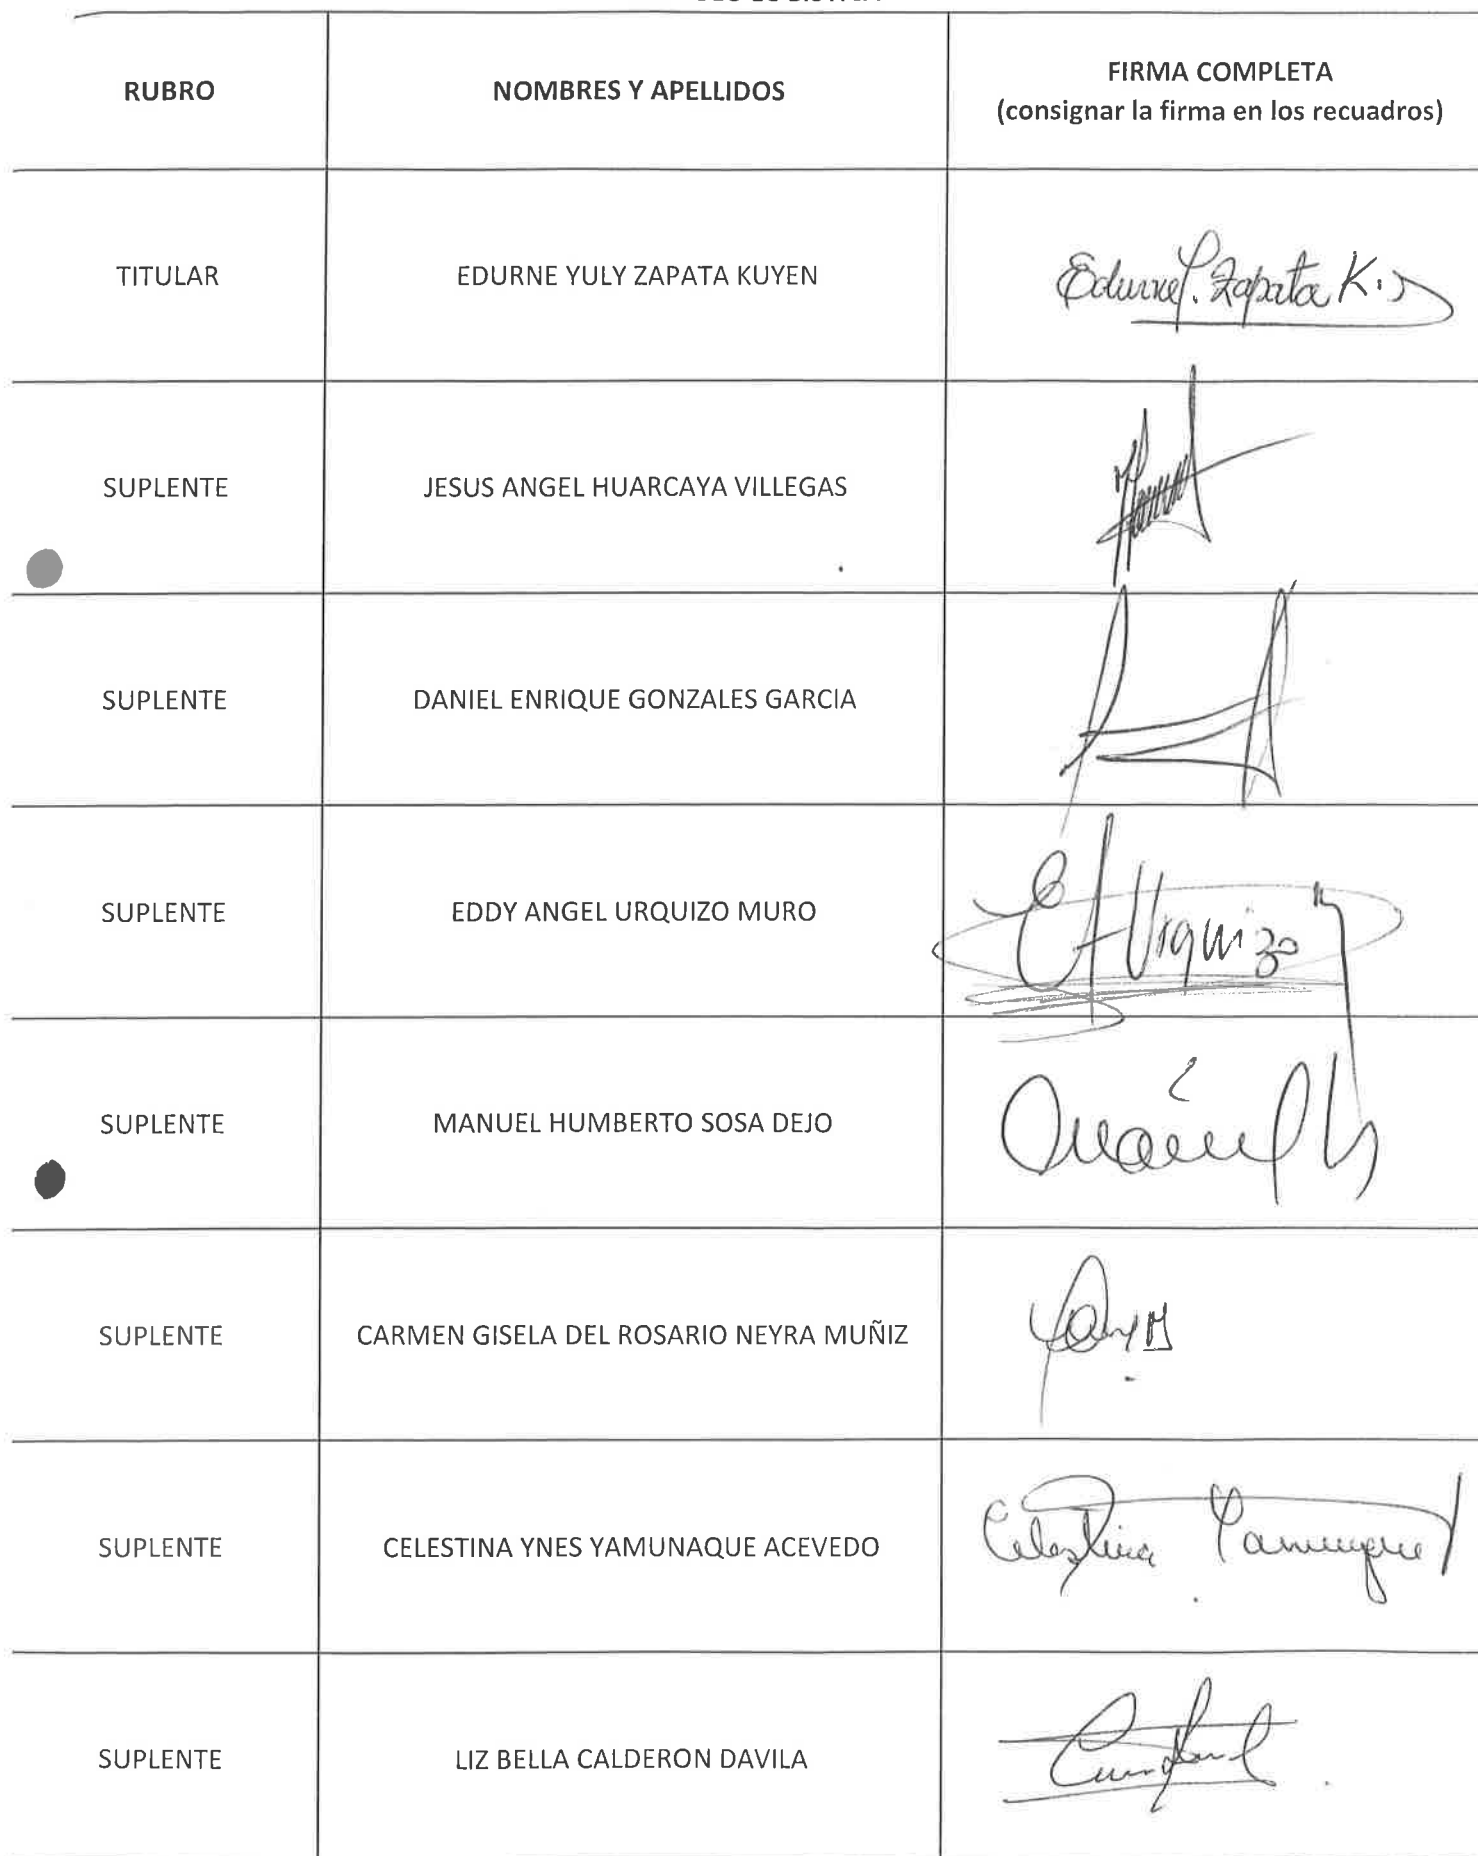 RUBRO
NOMBRES Y APELLIDOS
FIRMA COMPLETA
(consignar la firma en los recuadros)
TITULAR
EDURNE YULY ZAPATA KUYEN
Edurne Y. Zapata K.
SUPLENTE
JESUS ANGEL HUARCAYA VILLEGAS
SUPLENTE
DANIEL ENRIQUE GONZALES GARCIA
SUPLENTE
EDDY ANGEL URQUIZO MURO
EA Urquizo
SUPLENTE
MANUEL HUMBERTO SOSA DEJO
Manuel
SUPLENTE
CARMEN GISELA DEL ROSARIO NEYRA MUÑIZ
SUPLENTE
CELESTINA YNES YAMUNAQUE ACEVEDO
Celestina Yamunaque
SUPLENTE
LIZ BELLA CALDERON DAVILA